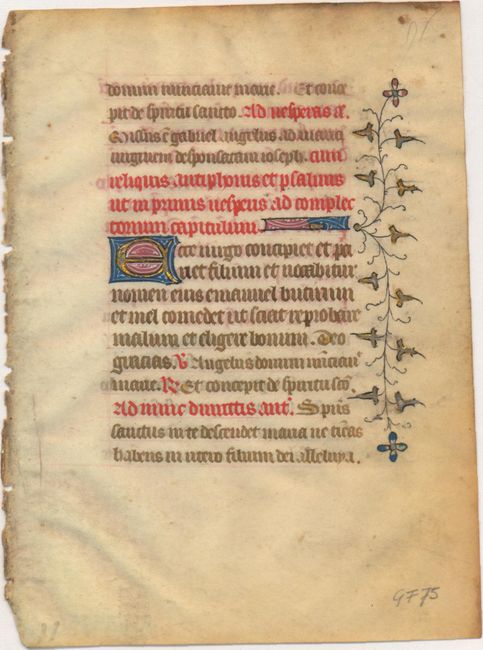 domini nunciavit marie. Et conce
pit de spiritu sancto. Ad vesperas a̅.
Missus e̅ gabriel angelus ad maria̅
virginem desponsatam ioseph. cum
reliquis antiphonis et psalmis
ut in primis vesperis ad complec
torium capitulum.
Ecce virgo concipiet et pa
riet filium et vocabitur
nomen eius emanuel butirum
et mel comedet ut sciat reprobare
malum et eligere bonum. Deo
gracias. V̅ Angelus domini nunciavit
marie. R̅ Et concepit de spiritu sc̅o.
Ad nunc dimittis ant̅. Sp̅us
sanctus in te descendet maria ne timeas
habens in utero filium dei alleluya.
GF75